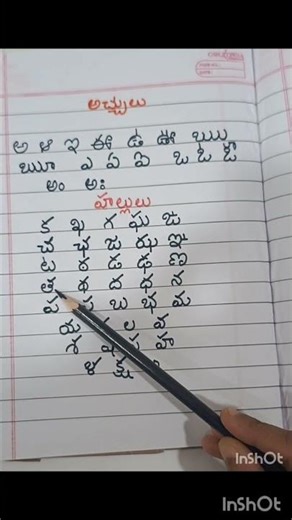 అచ్చులు
అ ఆ ఇ ఈ ఉ ఊ ఋ
ౠ ఎ ఏ ఐ ఒ ఓ ఔ
అం అః
హల్లులు
క ఖ గ ఘ ఙ
చ ఛ జ ఝ ఞ
ట ఠ డ ఢ ణ
త థ ద ధ న
ప బ భ మ
య ల వ
శ ష స హ
ళ క్ష
InShOt
InShOt